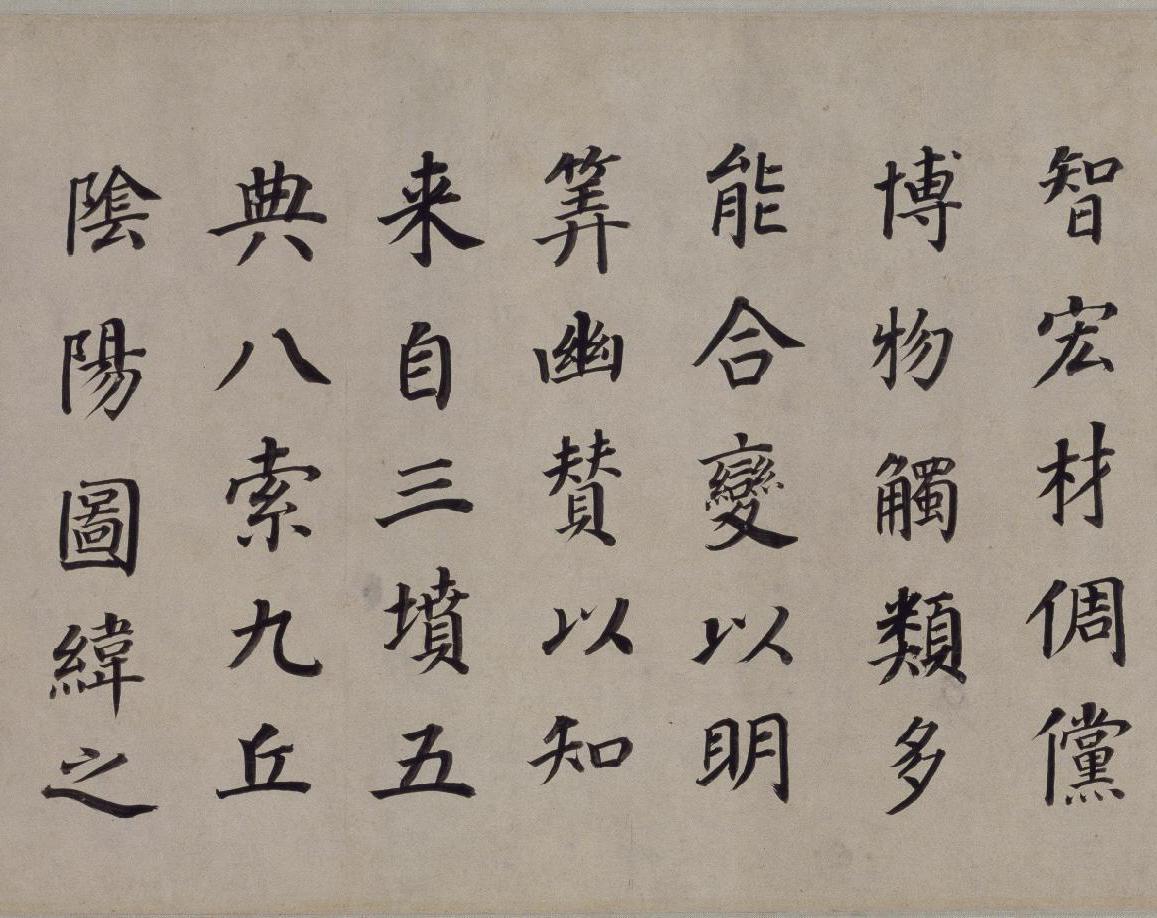 智宏材倜儻
博物觸類多
能合變以明
筭幽贊以知
来自三墳五
典八索九丘
陰陽圖緯之